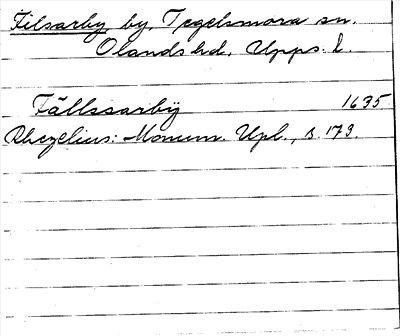 Filsarby by, Tegelsmora sn.
Olands hd, Upps. l.
Fällssarbÿ 1635
Rhezelius: Monum. Upl., s. 173.